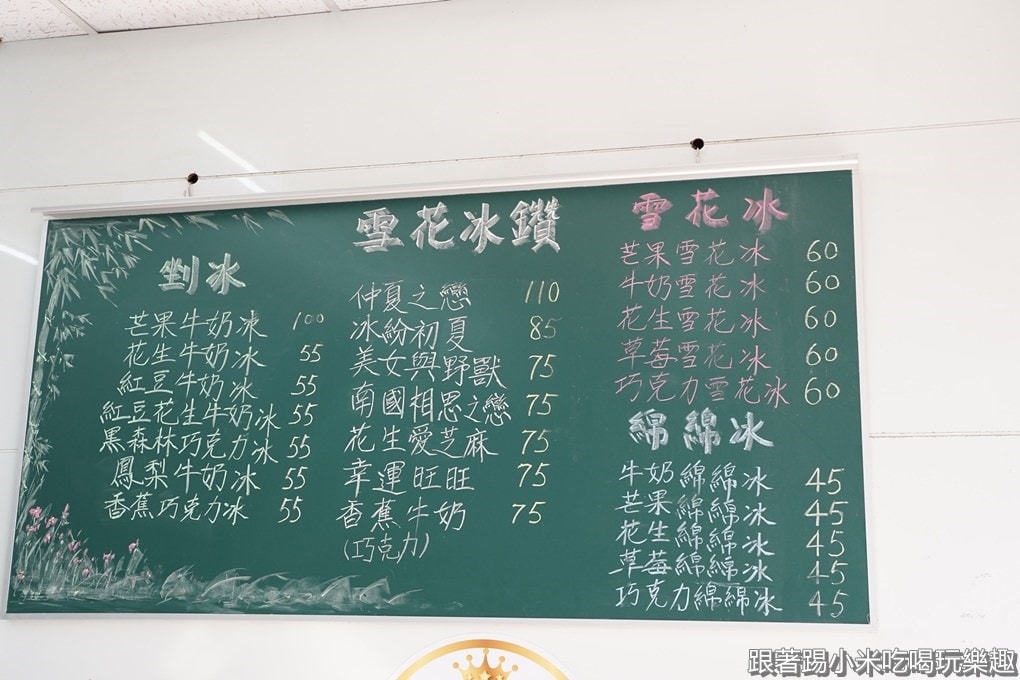 剉冰
芒果牛奶冰 100
花生牛奶冰 55
紅豆牛奶冰 55
紅豆花生牛奶冰 55
黑森林巧克力冰 55
鳳梨牛奶冰 55
香蕉巧克力冰 55
雪花冰鑽
仲夏之戀 110
冰紛初夏 85
美女與野獸 75
南國相思之戀 75
花生愛芝麻 75
幸運旺旺 75
香蕉牛奶 75
(巧克力)
雪花冰
芒果雪花冰 60
牛奶雪花冰 60
花生雪花冰 60
草莓雪花冰 60
巧克力雪花冰 60
綿綿冰
牛奶綿綿冰 45
芒果綿綿冰 45
花生綿綿冰 45
草莓綿綿冰 45
巧克力綿綿冰 45
跟著踢小米吃喝玩樂趣